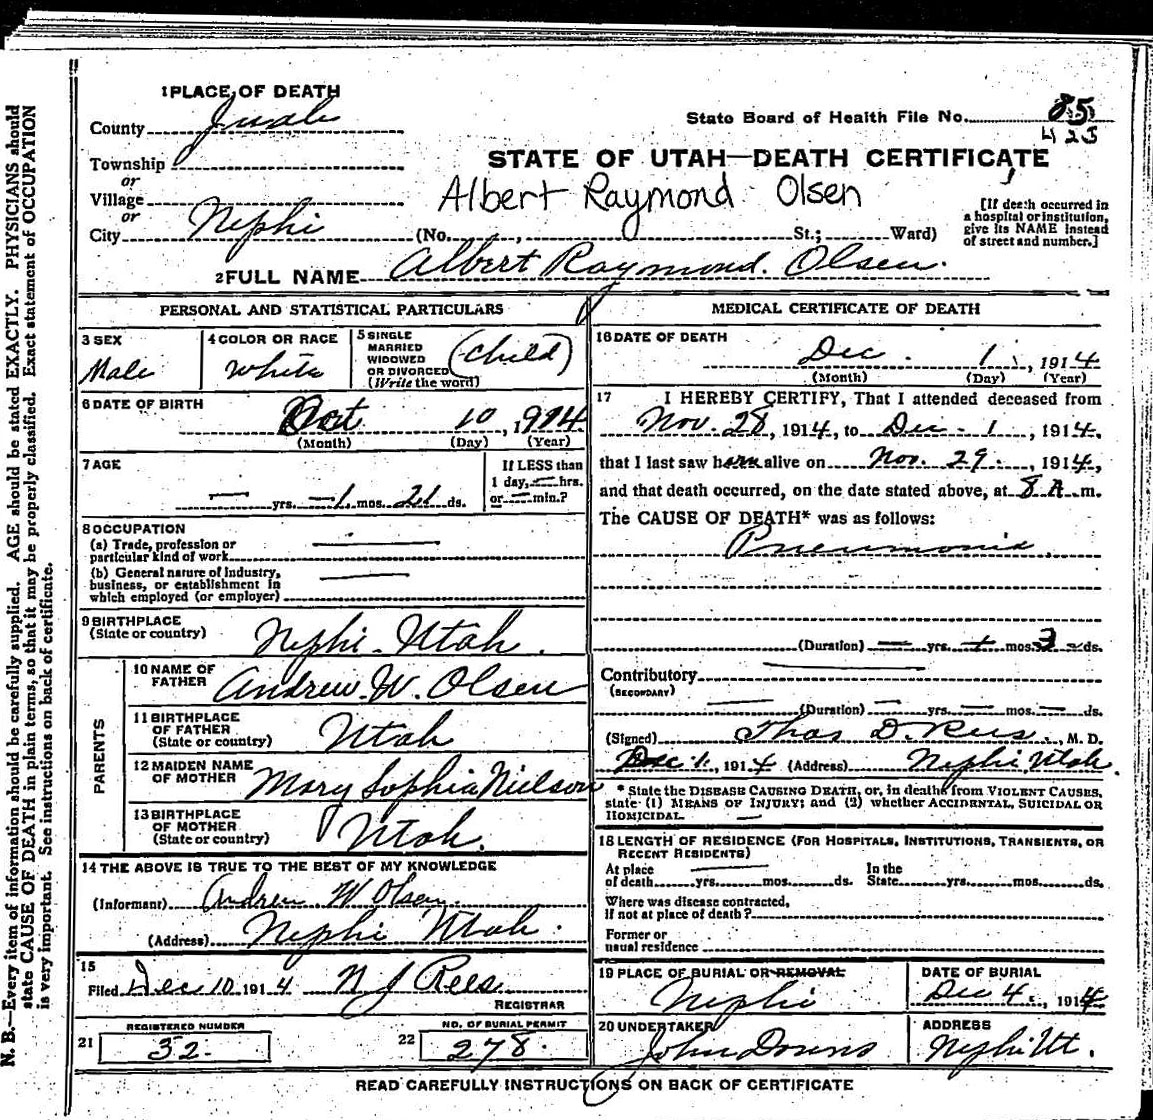 1 PLACE OF DEATH
County Juab
State Board of Health File No. 85
423
Township
or
Village
or
City Nephi
STATE OF UTAH—DEATH CERTIFICATE
Albert Raymond Olsen
(No. , St.; Ward)
[If death occurred in
a hospital or institution,
give its NAME instead
of street and number.]
2 FULL NAME Albert Raymond. Olsen.
PERSONAL AND STATISTICAL PARTICULARS
3 SEX
Male
4 COLOR OR RACE
White
5 SINGLE
MARRIED
WIDOWED
OR DIVORCED
(Write the word)
(Child)
6 DATE OF BIRTH
Oct 10, 1914
(Month) (Day) (Year)
7 AGE
— yrs. 1 mos. 21 ds.
If LESS than
1 day, — hrs.
or — min.?
8 OCCUPATION
(a) Trade, profession or
particular kind of work —
(b) General nature of industry,
business, or establishment in
which employed (or employer) —
9 BIRTHPLACE
(State or country) Nephi Utah.
PARENTS
10 NAME OF
FATHER Andrew. W. Olsen
11 BIRTHPLACE
OF FATHER
(State or country) Utah
12 MAIDEN NAME
OF MOTHER Mary Sophia Nielson
13 BIRTHPLACE
OF MOTHER
(State or country) Utah.
14 THE ABOVE IS TRUE TO THE BEST OF MY KNOWLEDGE
(Informant) Andrew W Olsen.
(Address) Nephi Utah.
15
Filed Dec 10 1914 N J Rees
REGISTRAR
REGISTERED NUMBER
21 32.
NO. OF BURIAL PERMIT
22 278.
MEDICAL CERTIFICATE OF DEATH
16 DATE OF DEATH
Dec. 1, 1914
(Month) (Day) (Year)
17 I HEREBY CERTIFY, That I attended deceased from
Nov. 28, 1914, to Dec. 1, 1914,
that I last saw him alive on Nov. 29., 1914,
and that death occurred, on the date stated above, at 8 A.m.
The CAUSE OF DEATH* was as follows:
Pneumonia.
(Duration) — yrs. — mos. 3 ds.
Contributory —
(SECONDARY)
(Duration) — yrs. — mos. — ds.
(Signed) Thos D. Rees, M. D.
Dec 1, 1914 (Address) Nephi Utah.
* State the DISEASE CAUSING DEATH, or, in deaths from VIOLENT CAUSES,
state (1) MEANS OF INJURY; and (2) whether ACCIDENTAL, SUICIDAL OR
HOMICIDAL.
18 LENGTH OF RESIDENCE (FOR HOSPITALS, INSTITUTIONS, TRANSIENTS, OR
RECENT RESIDENTS)
At place
of death yrs. mos. ds.
In the
State yrs. mos. ds.
Where was disease contracted,
if not at place of death?
Former or
usual residence
19 PLACE OF BURIAL OR REMOVAL
Nephi
DATE OF BURIAL
Dec 4., 1914
20 UNDERTAKER
John Downs
ADDRESS
Nephi Ut.
READ CAREFULLY INSTRUCTIONS ON BACK OF CERTIFICATE
N. B.—Every item of information should be carefully supplied. AGE should be stated EXACTLY. PHYSICIANS should
state CAUSE OF DEATH in plain terms, so that it may be properly classified. Exact statement of OCCUPATION
is very important. See instructions on back of certificate.